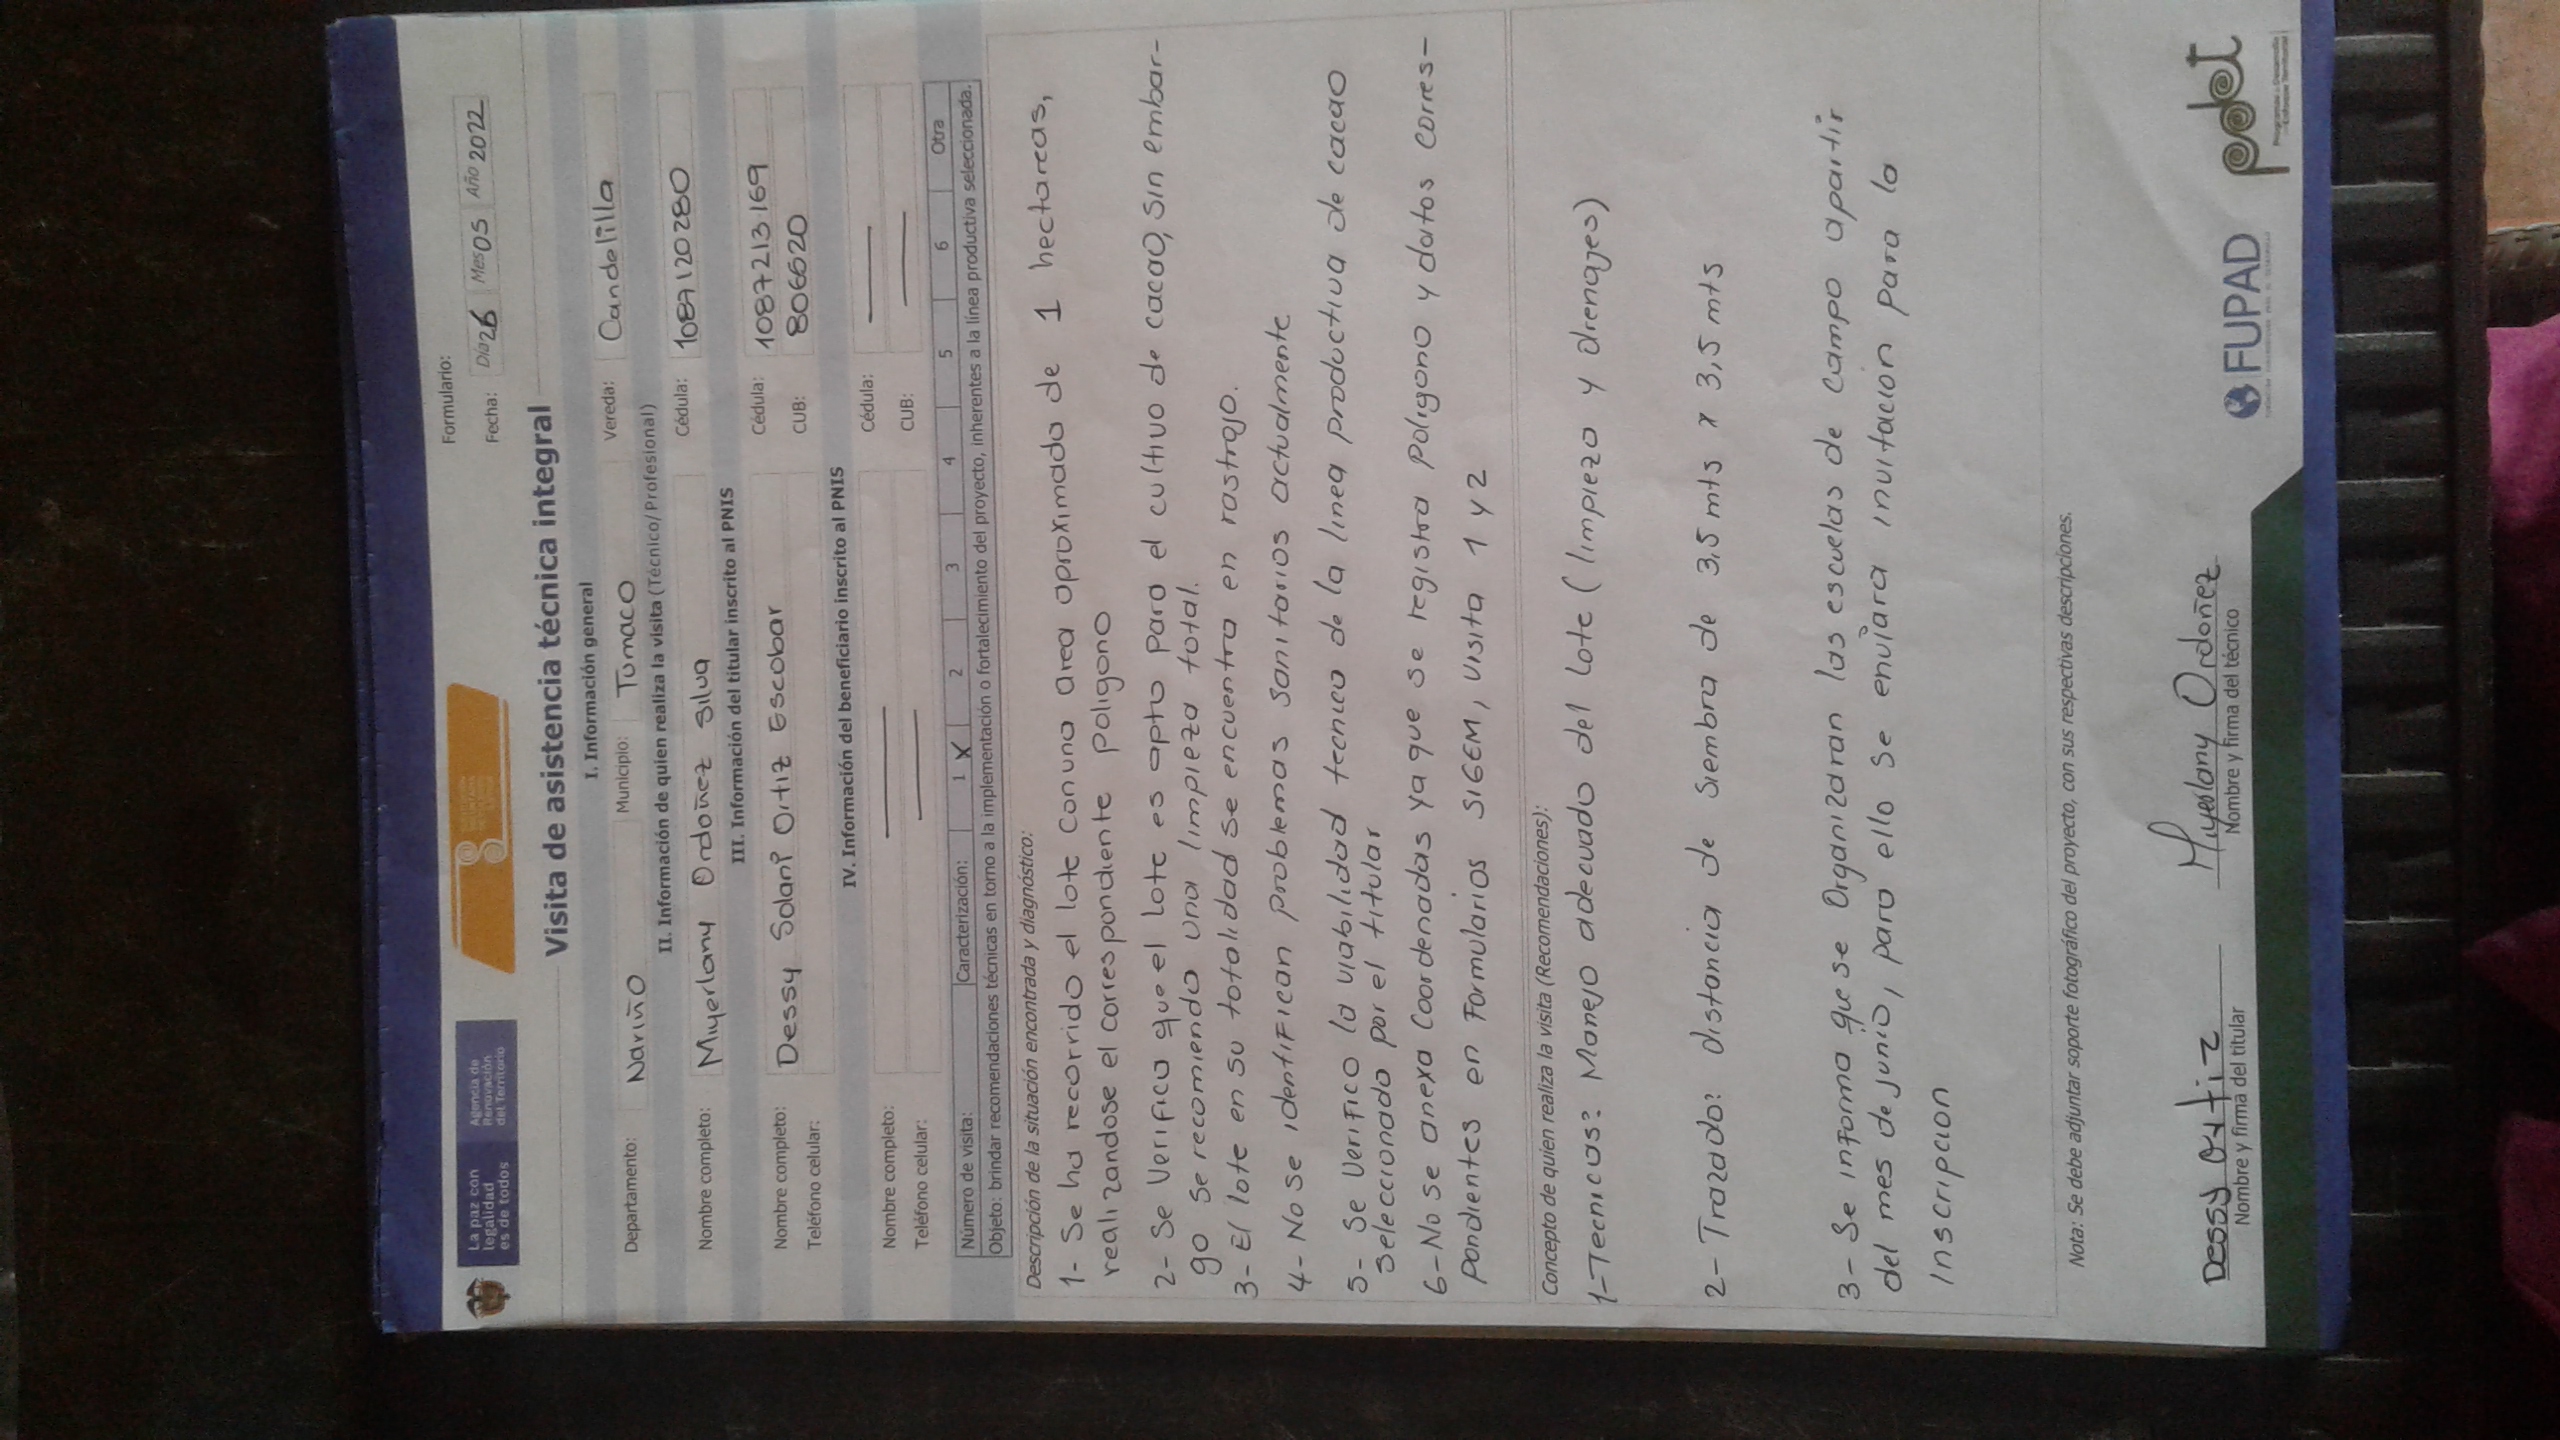 La paz con
legalidad
es de todos
Agencia de
Renovación
del Territorio
Formulario:
Fecha: Día 26 Mes 05 Año 2022
Visita de asistencia técnica integral
I. Información general
Departamento: Nariño Municipio: Tumaco Vereda: Candelilla
II. Información de quien realiza la visita (Técnico/Profesional)
Nombre completo: Miyerlany Ordoñez Silva Cédula: 1087120280
III. Información del titular inscrito al PNIS
Nombre completo: Dessy Solani Ortiz Escobar Cédula: 1087213169
Teléfono celular: CUB: 806620
IV. Información del beneficiario inscrito al PNIS
Nombre completo: Cédula:
Teléfono celular: CUB:
Número de visita: Caracterización: 1 X 2 3 4 5 6 Otra
Objeto: brindar recomendaciones técnicas en torno a la implementación o fortalecimiento del proyecto, inherentes a la línea productiva seleccionada.
Descripción de la situación encontrada y diagnóstico:
1- Se ha recorrido el lote con una area aproximada de 1 hectareas,
realizandose el correspondiente poligono
2- Se Verifico que el lote es apto para el cultivo de cacao, sin embar-
go se recomiendo una limpieza total.
3- El lote en su totalidad se encuentra en rastrojo.
4- No se identifican problemas sanitarios actualmente
5- Se Verifico la viabilidad tecnico de la linea productiva de cacao
Seleccionado por el titular
6- No se anexa Coordenadas ya que se registra poligono y datos corres-
pondientes en Formularios SIGEM, visita 1 y 2
Concepto de quien realiza la visita (Recomendaciones):
1- Tecnicos: Manejo adecuado del lote (limpieza y drenajes)
2- Trazado: distancia de Siembra de 3,5 mts x 3,5 mts
3- Se informa que se Organizaran las escuelas de campo apartir
del mes de junio, para ello Se enviara invitacion para la
Inscripcion
Nota: Se debe adjuntar soporte fotográfico del proyecto, con sus respectivas descripciones.
Dessy Ortiz
Nombre y firma del titular
Miyerlany Ordoñez
Nombre y firma del técnico
FUPAD
pdet
Programas de Desarrollo
con Enfoque Territorial